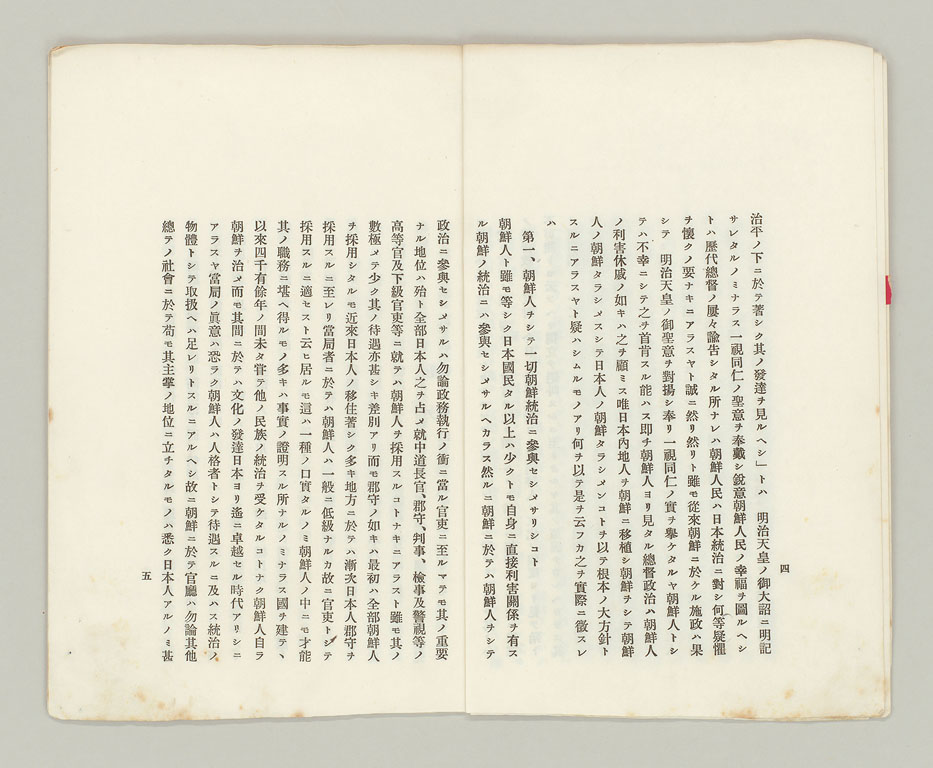 治平ノ下ニ於テ著シク其ノ發達ヲ見ルヘシ」トハ　明治天皇ノ御大詔ニ明記
サレタルノミナラス一視同仁ノ聖意ヲ奉戴シ銳意朝鮮人民ノ幸福ヲ圖ルヘシ
トハ歷代總督ノ屢々諭告シタル所ナレハ朝鮮人民ハ日本統治ニ對シ何等疑懼
ヲ懷クノ要ナキニアラスヤト誠ニ然リ然リト雖モ從來朝鮮ニ於ケル施政ハ果
シテ　明治天皇ノ御聖意ヲ對揚シ奉リ一視同仁ノ實ヲ擧ケタルヤ朝鮮人トシ
テハ不幸ニシテ之ヲ首肯スル能ハス即チ朝鮮人ヨリ見タル總督政治ハ朝鮮人
ノ利害休戚ノ如キハ之ヲ顧ミス唯日本內地人ヲ朝鮮ニ移植シ朝鮮ヲシテ朝鮮
人ノ朝鮮タラシメスシテ日本人ノ朝鮮タラシメンコトヲ以テ根本ノ大方針ト
スルニアラスヤト疑ハシムルモノアリ何ヲ以テ是ヲ云フカ之ヲ實際ニ徵スレ
ハ
第一、朝鮮人ヲシテ一切朝鮮統治ニ參與セシメサリシコト
朝鮮人ト雖モ等シク日本國民タル以上ハ少クトモ自身ニ直接利害關係ヲ有ス
ル朝鮮ノ統治ニハ參與セシメサルヘカラス然ルニ朝鮮ニ於テハ朝鮮人ヲシテ
四
政治ニ參與セシメサルハ勿論政務執行ノ衝ニ當ル官吏ニ至ルマテモ其ノ重要
ナル地位ハ殆ト全部日本人之ヲ占メ就中道長官、郡守、判事、檢事及警視等ノ
高等官及下級官吏等ニ就テハ朝鮮人ヲ採用スルコトナキニアラスト雖モ其ノ
數極メテ少ク其ノ待遇亦甚シキ差別アリ而モ郡守ノ如キハ最初ハ全部朝鮮人
ヲ採用シタルモ近來日本人ノ移住著シク多キ地方ニ於テハ漸次日本人郡守ヲ
採用スルニ至レリ當局者ニ於テハ朝鮮人ハ一般ニ低級ナルカ故ニ官吏トシテ
採用スルニ適セスト云ヒ居ルモ這ハ一種ノ口實タルノミ朝鮮人ノ中ニモ才能
其ノ職務ニ堪ヘ得ルモノ多キハ事實ノ證明スル所ナルノミナラス國ヲ建テヽ
以來四千有餘年ノ間未タ嘗テ他ノ民族ノ統治ヲ受ケタルコトナク朝鮮人自ラ
朝鮮ヲ治メ而モ其間ニ於テハ文化ノ發達日本ヨリ遙ニ卓越セル時代アリシニ
アラスヤ當局ノ眞意ハ恐ラク朝鮮人ハ人格者トシテ待遇スルニ及ハス統治ノ
物體トシテ取扱ヘハ足レリトスルニアルヘシ故ニ朝鮮ニ於テ官廳ハ勿論其他
總テノ社會ニ於テ苟モ其主掌ノ地位ニ立チタルモノハ悉ク日本人アルノミ甚
五